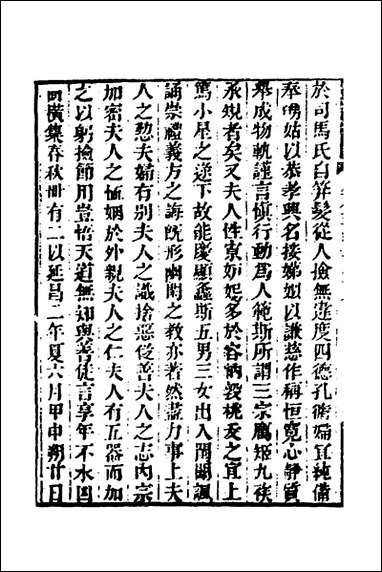 於司馬氏自笄髮從人撿無違度四德孔脩婦宜純備
奉舅姑以恭孝興名接娣姒以謙慈作稱恒寬心靜質
舉成物軌謹言愼行動爲人範斯所謂三宗厲姬九族
承規者矣又夫人性寡妬娼多於容納敦桃夭之宜上
篤小星之逮下故能慶顯螽斯五男三女出入閨闈諷
誦崇禮義方之誨旣形幽閒之教亦著然盡力事上夫
人之懃夫婦有别夫人之識捨惡從善夫人之志內宗
加密夫人之恤姻於外親夫人之仁夫人有五器而加
之以躬撿節用豈悟天道無知與善徒言享年不永凶
橫集春秋卌有二以延昌二年夏六月甲申朔廿日